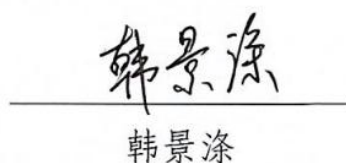 韩景涤
韩景涤